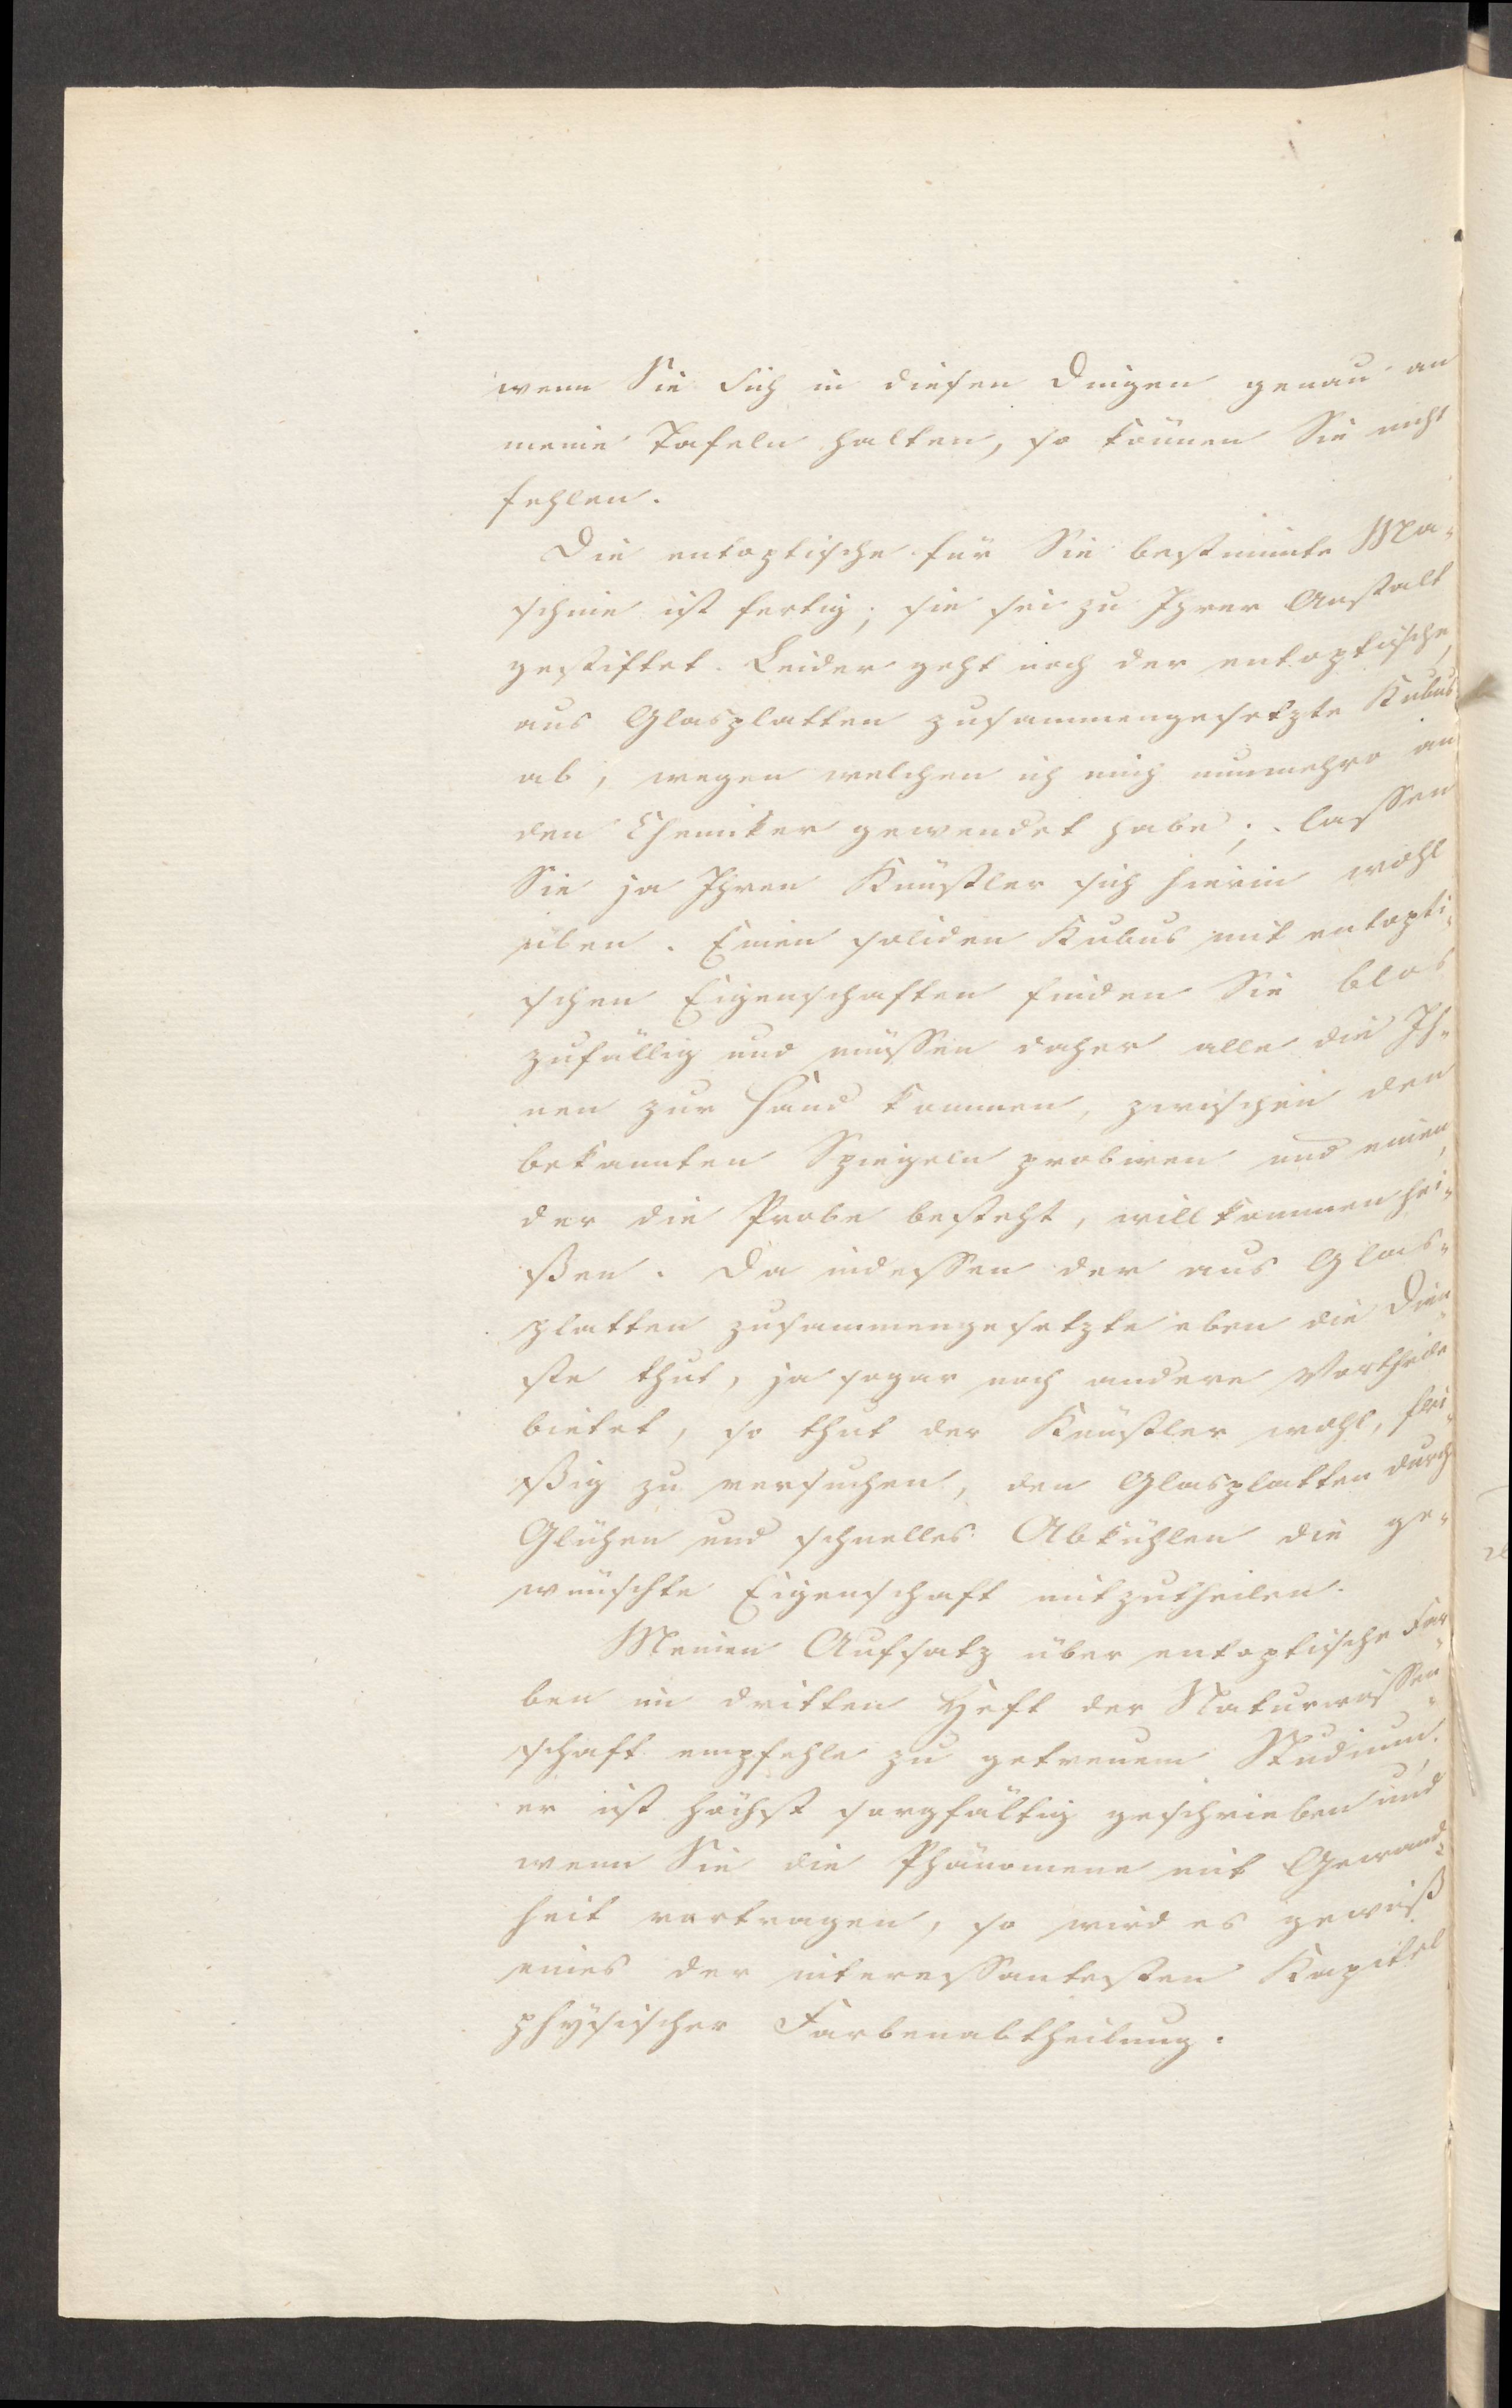 wenn Sie Sich in diesen Dingen genau an
meine Tafeln halten, so können Sie nicht
fehlen.
Die entoptische für Sie bestimmte Ma-
schine ist fertig; sie sei zu Ihrer Anstalt
gestiftet. Leider geht noch der entoptische,
aus Glasplatten zusammengesetzte Kubus
ab, wegen welchen ich mich nunmehro an
den Chemiker gewendet habe; lassen
Sie ja Ihren Künstler sich hierin wohl
üben. Einen soliden Kubus mit entopti-
schen Eigenschaften finden Sie blos
zufällig und müssen daher alle die Ih-
nen zur Hand kommen, zwischen den
bekannten Spiegeln probiren und einen,
der die Probe besteht, willkommen hei-
ßen. Da indessen der aus Glas-
platten zusammengesetzte eben die Dien-
ste thut, ja sogar noch andere Vortheile
bietet, so thut der Künstler wohl, flei-
ßig zu versuchen, den Glasplatten durch
Glühen und schnelles Abkühlen die ge-
wünschte Eigenschaft mitzutheilen.
Meinen Aufsatz über entoptische Far-
ben im dritten Heft der Naturwissen-
schaft empfehle zu getreuem Studium;
er ist höchst sorgfältig geschrieben und
wenn Sie die Phänomene mit Gewand-
heit vortragen, so wird es gewiß
eines der interessantesten Kapitel
physischer Farbenabtheilung.